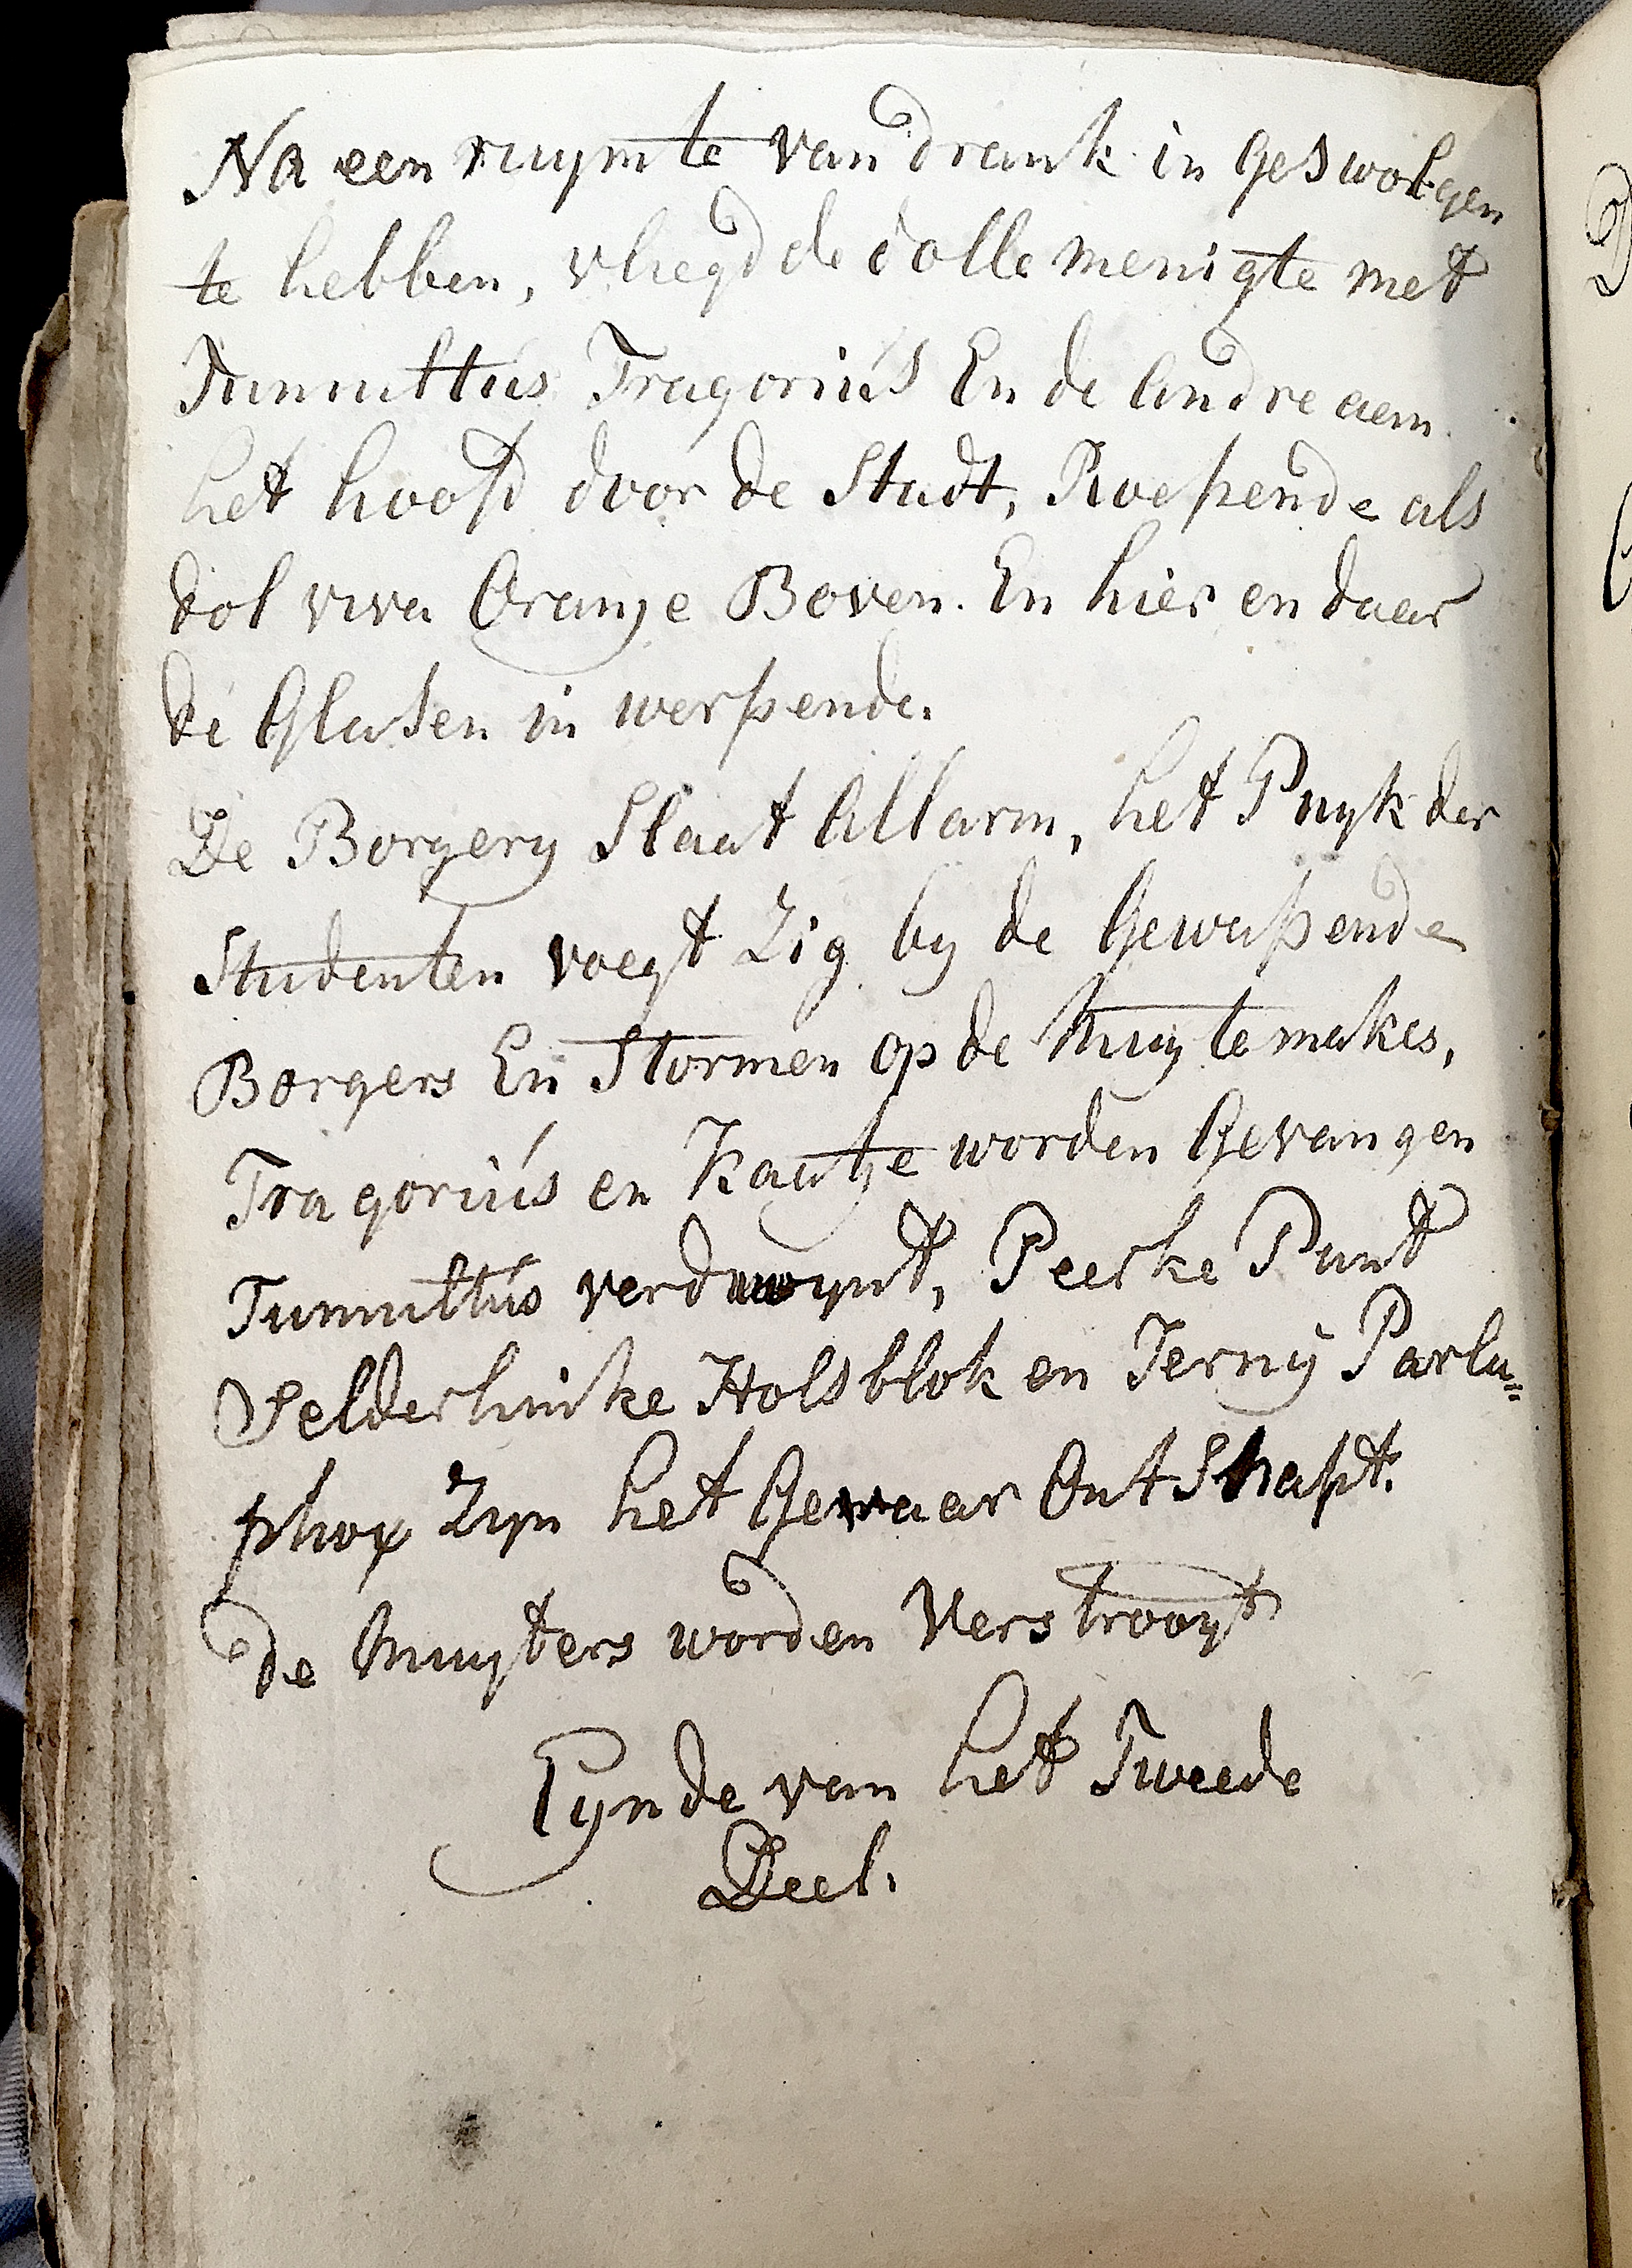 Na een ruymte van drank in geswolgen
te hebben, vliegd de dolle menigte met
Tumultus Tragorius En de Andre aen
het hoofd door de Stadt, Roepende als
dol viva Oranje Boven. En hier en daer
de Glasen in werpende.
De Borgery Slaat Allarm, het Puyk der
Studenten voegt Zig by de Gewapende
Borgers En Stormen op de Muytemakes,
Tragorius en Kaatje worden Gevangen
Tumultus verdwynt, Peerke Punt
Selderlinke Holsblok en Jerny Parlu=
phox Zyn het Gevaar Ontsnapt.
de Muyters worden Verstrooyt
Eynde van het Tweede
Deel.